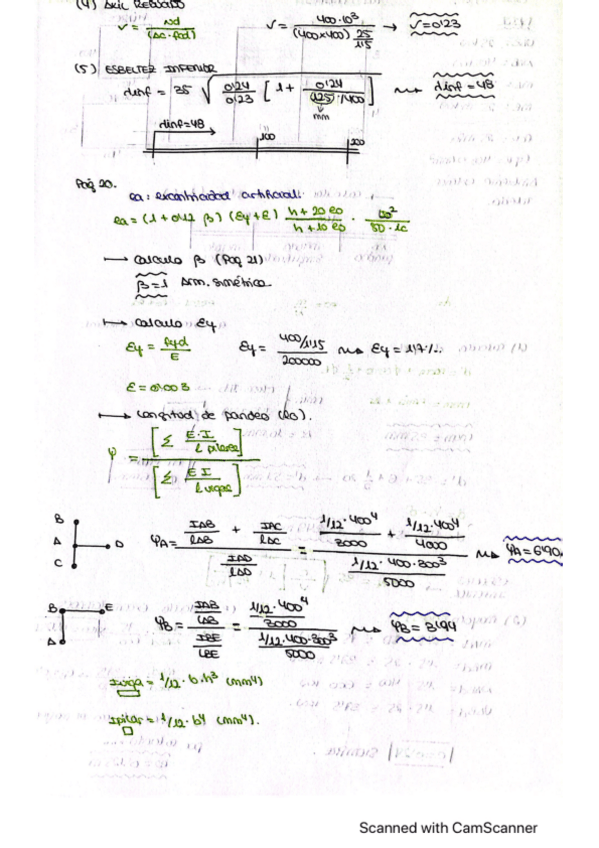 (4) AXIL REDUCIDO
ν = Nd / (Ac · fcd)   ν = 400·10³ / (400×400) 25/1'5 → ν=0'23
(5) ESBELTEZ INFERIOR
λinf = 35 √ 0'24/0'23 [ 1 + 0'24 / (125)/400 ] ⇝ λinf = 48
mm
λinf=48
100 200
Pág 20.
ea: excentricidad artificial.
ea = (1 + 0'12 β) (εy + ε) h + 20 eo / h + 10 eo · lo² / 50 · ic
↦ Calculo β (Pag 21)
β=1 Arm. simétrica
↦ Calculo εy
εy = fyd / E   εy = 400/1'15 / 200000 ⇝ εy = 1'7‰
ε = 0'003
↦ Longitud de pandeo (lo).
ψ = [ Σ E·I / l pilares ] / [ Σ EI / l vigas ]
B
A D
C
ψA = IAB/lAB + IAC/lAC / IAD/lAD = 1/12·400⁴/3000 + 1/12·400⁴/4000 / 1/12·400·300³/5000 ⇝ ψA = 6'90
B E
A
ψB = IAB/LAB / IBE/LBE = 1/12·400⁴/3000 / 1/12·400·300³/5000 ⇝ ψB = 3'94
Iviga = 1/12 · b·h³ (mm4)
Ipilar = 1/12 · b4 (mm4).
Scanned with CamScanner